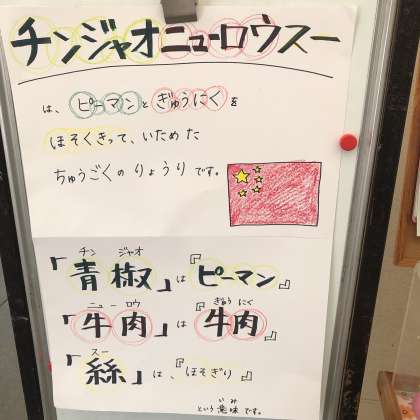 チンジャオニューロウスー
は、ピーマンとぎゅうにくを
ほそくきって、いためた
ちゅうごくのりょうりです。
チン ジャオ
「青椒」は『ピーマン』
ニュー ロウ ぎゅう にく
「牛肉」は『牛肉』
スー
「絲」は、『ほそぎり』
いみ
という意味です。